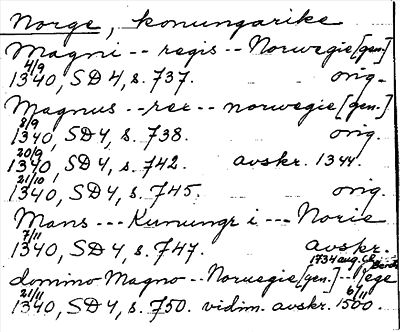 Norge, konungarike
Magni -- regis -- Norwegie [gen.]
4/9
1340, SD 4, s. 737. orig.
Magnus -- rex -- norwegie [gen.]
8/9
1340, SD 4, s. 738. orig.
20/9
1340, SD 4, s. 742. avskr. 1344.
21/10
1340, SD 4, s. 745. orig.
Mans --- Kunungr i --- Norie
7/11
1340, SD 4, s. 747. avskr.
1734 aug.
domino Magno -- Noruegie [gen.] -- rege
21/11 6/11
1340, SD 4, s. 750. vidim. avskr. 1500.